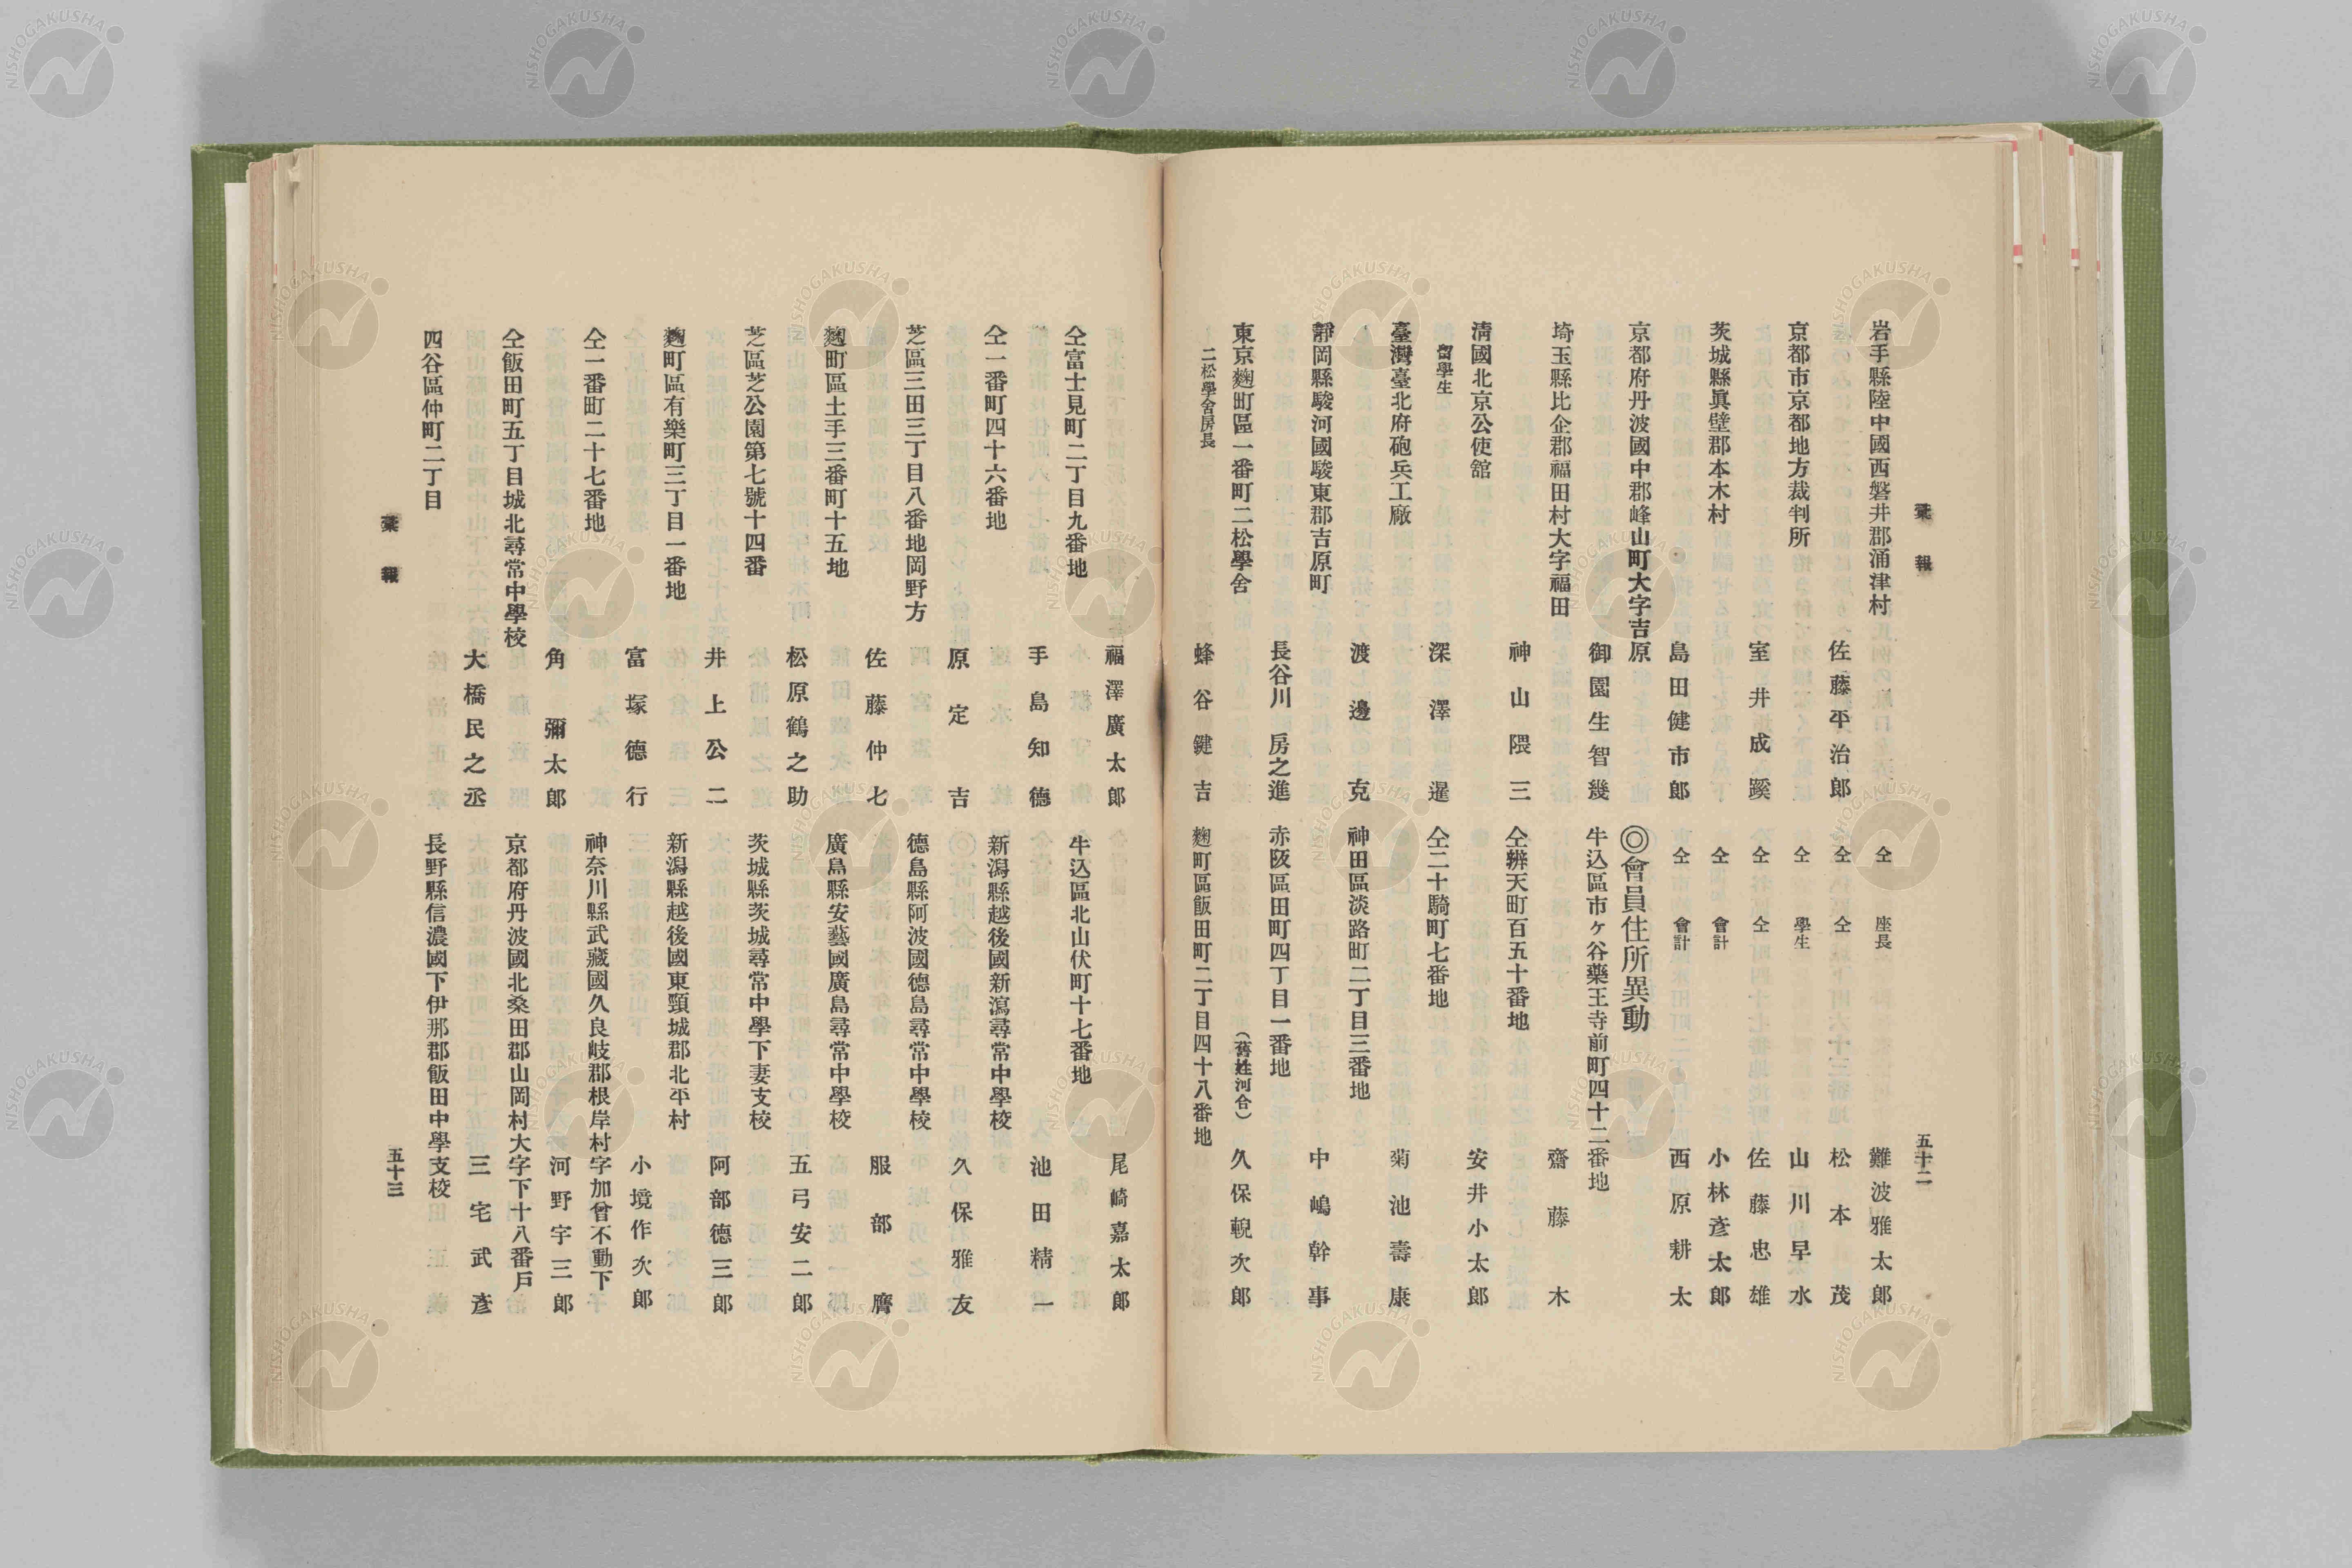 彙報
五十二
岩手縣陸中國西磐井郡涌津村
佐藤平治郎
京都市京都地方裁判所
室井成蹊
茨城縣眞壁郡本木村
島田健市郎
京都府丹波國中郡峰山町大字吉原
御園生智幾
埼玉縣比企郡福田村大字福田
神山隈三
淸國北京公使舘
留學生
深澤暹
臺灣臺北府砲兵工廠
渡邊克
靜岡縣駿河國駿東郡吉原町
長谷川房之進
東京麴町區一番町二松學舍
二松學舍房長
蜂谷鍵吉
仝 座長 難波雅太郎
仝 仝 松本茂
仝 學生 山川早水
仝 仝 佐藤忠雄
仝 會計 小林彥太郎
仝 會計 西原耕太
◎會員住所異動
牛込區市ヶ谷藥王寺前町四十二番地
齋藤木
仝辨天町百五十番地
安井小太郎
仝二十騎町七番地
菊池壽康
神田區淡路町二丁目三番地
中嶋幹事
赤阪區田町四丁目一番地
(舊姓河合)
久保輗次郎
麴町區飯田町二丁目四十八番地
福澤廣太郎
仝富士見町二丁目九番地
手島知德
仝一番町四十六番地
原定吉
芝區三田三丁目八番地岡野方
佐藤仲七
麴町區土手三番町十五地
松原鶴之助
芝區芝公園第七號十四番
井上公二
麴町區有樂町三丁目一番地
富塚德行
仝一番町二十七番地
角彌太郎
仝飯田町五丁目城北尋常中學校
大橋民之丞
四谷區仲町二丁目
尾崎嘉太郎
牛込區北山伏町十七番地
池田精一
新潟縣越後國新瀉尋常中學校
久保雅友
德島縣阿波國德島尋常中學校
服部膺
廣島縣安藝國廣島尋常中學校
五弓安二郎
茨城縣茨城尋常中學下妻支校
阿部德三郎
新潟縣越後國東頸城郡北平村
小境作次郎
神奈川縣武藏國久良岐郡根岸村字加曾不動下
河野宇三郎
京都府丹波國北桑田郡山岡村大字下十八番戶
三宅武彥
長野縣信濃國下伊那郡飯田中學支校
彙報
五十三